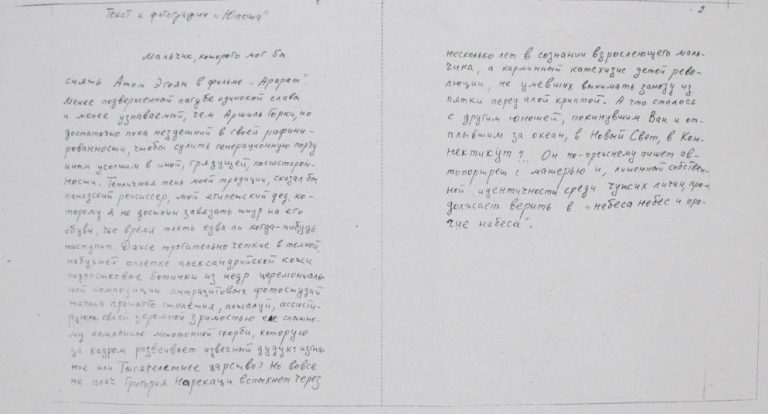 Текст к фотографии "Юноша"
Мальчик, которого мог бы
снять Атом Эгоян в фильме "Арарат".
Менее подверженный пагубе одинокой славы
и менее узнаваемый, чем Аршиль Горки, но
достаточно пока нездешний в своей рафини-
рованности, чтобы сулить генерационную
иным усопшим в иной, грядущей, посюсторон-
ности. Тень моей традиции, сказал бы
канадский режиссер, мой египетский дед, ко-
торому я не достоин завязать шнур на его
обуви, чье время тлеть едва ли когда-нибудь
наступит. Даже трогательно четкие в темной,
набухшей оплетке александрийской кожи
подростковые ботинки из недр церемониаль-
ной композиции антрацитовых фотостудий
начала прошлого столетия, пожалуй, ассисти-
руют своей укромной зримостью не слышно-
му камланию монотонной скорби, которую
за кадром розвеивает извечный дудук: изгна-
ние или Тысячелетнее царство? Но вовсе
не плач Григория Нарекаци вспыхнет через
2
несколько лет в сознании взрослеющего маль-
чика, а карминный катехизис детей рево-
люции, не умевших вынимать занозу из
пятки перед алой криптой. А что сталось
с другим юношей, покинувшим Ван и от-
плывшим за океан, в Новый Свет, в Кон-
нектикут? .. Он по-прежнему пишет ав-
топортрет с матерью и, лишенный собствен-
ной идентичности среди чужих личин, про-
должает верить в "небеса небес и про-
чие небеса".